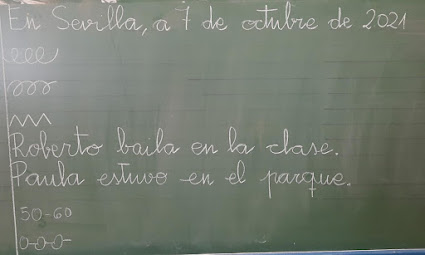 En Sevilla, a 7 de octubre de 2021
Roberto baila en la clase.
Paula estuvo en el parque.
50-60
0-0-0-